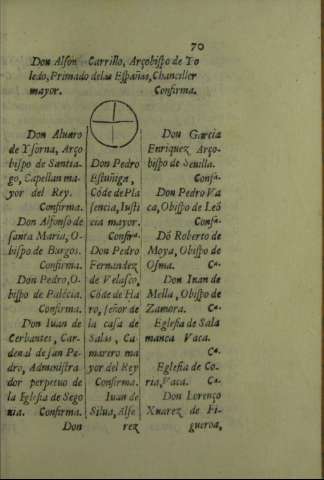 70
Don Alfon Carrillo, Arçobispo de To
ledo, Primado de las Españas, Chanciller
mayor. Confirma.
Don Aluaro
de Ysorna, Arço
bispo de Santia-
go, Capellan ma-
yor del Rey.
Confirma.
Don Alfonso de
santa Maria, O-
bispo de Burgos.
Confirma.
Don Pedro, O-
bispo de Palẽcia.
Confirma.
Don Iuan de
Cerbantes, Car-
denal de san Pe-
dro, Administra
dor perpetuo de
la Eglesia de Sego
uia. Confirma.
Don Pedro
Estuñiga,
Cõde de Pla
sencia, Iusti
cia mayor.
Confirma.
Don Pedro
Fernandez
de Velasco,
Cõde de Ha
ro, señor de
la casa de
Salas, Ca-
marero ma
yor del Rey
Confirma.
Iuan de
Silua, Alfe
rez
Don Garcia
Enriquez Arço-
bispo de Seuilla.
Confa.
Don Pedro Va
ca, Obispo de Leõ
Confa.
Dõ Roberto de
Moya, Obispo de
Osma. Ca.
Don Iuan de
Mella, Obispo de
Zamora. Ca.
Eglesia de Sala
manca Vaca.
Ca.
Eglesia de Co-
ria, Vaca. Ca.
Don Lorenço
Xuarez de Fi-
gueroa,
Don